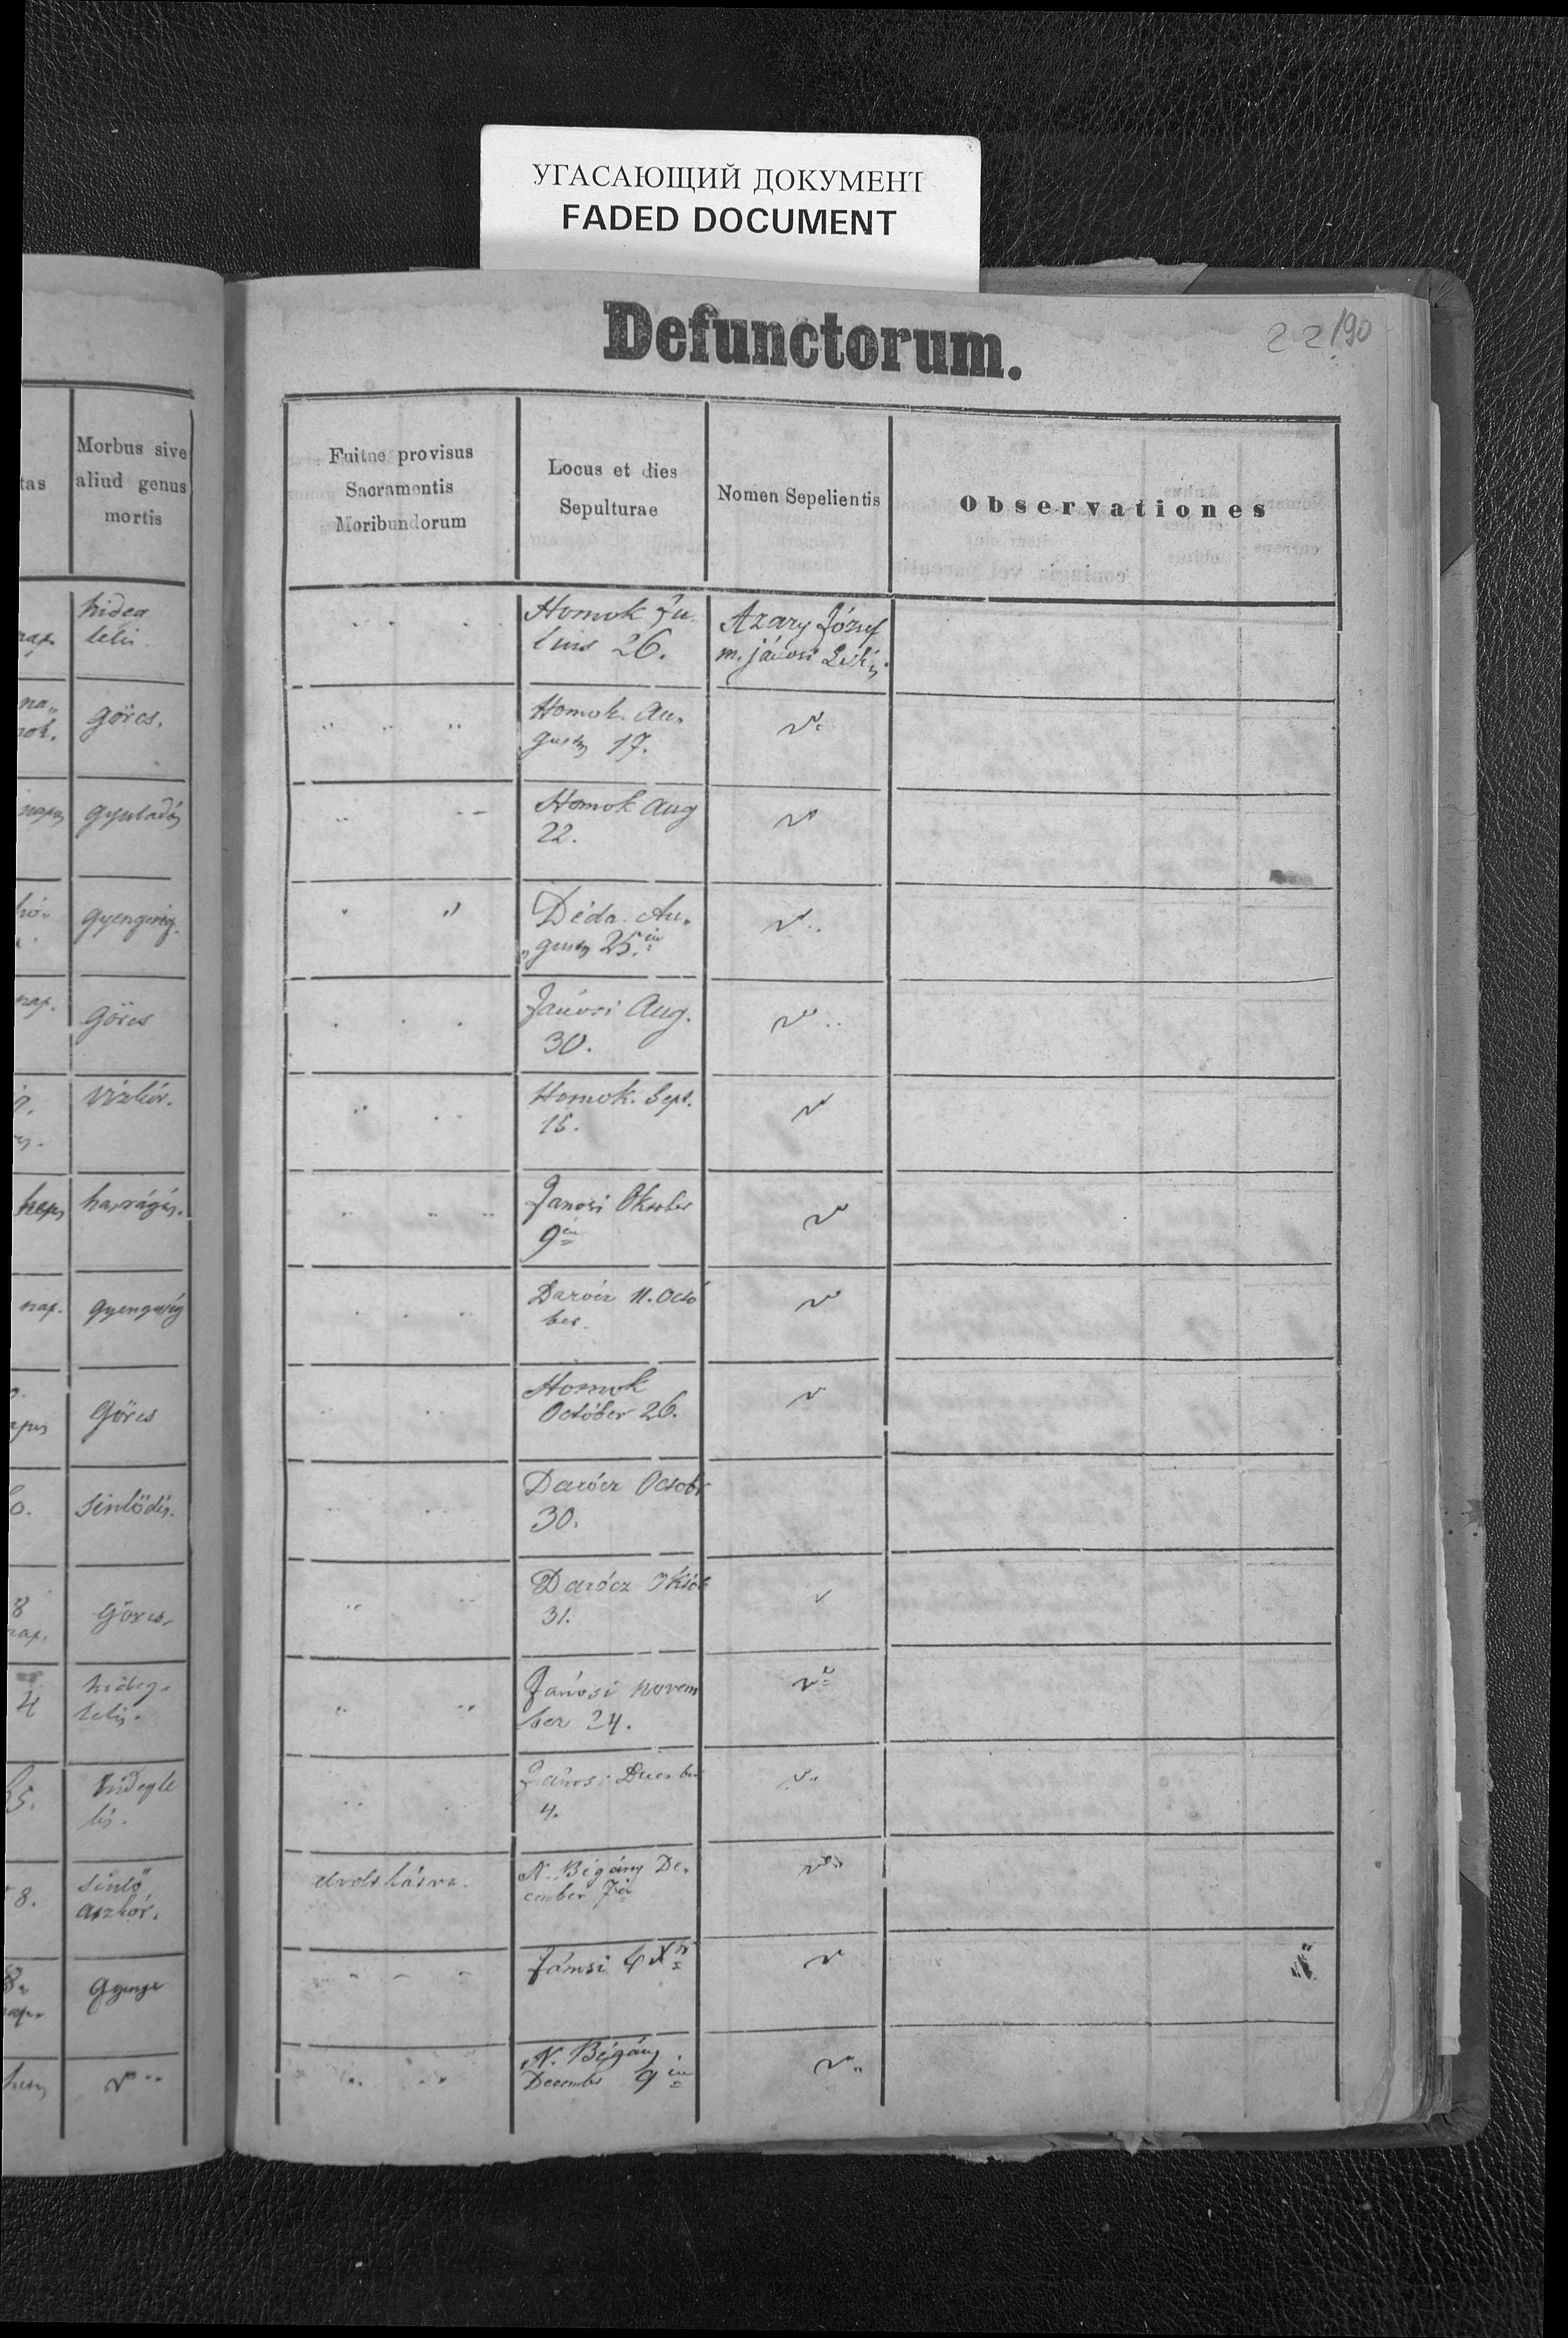 УГАСАЮЩИЙ ДОКУМЕНТ
FADED DOCUMENT
Defunctorum.
22 190
tas
Morbus sive
aliud genus
mortis
Fuitne provisus
Sacramentis
Moribundorum
Locus et dies
Sepulturae
Nomen Sepelientis
Observationes
nap.
hideg
lelis
Homok Ju-
lius 26.
Azary József
m. jánosi
na„
görcs.
Homok. Au„
gustus 17.
napos
gyuladás
Homok Aug
22.
gyengeség.
Déda. Au„
„gustus 25.én
nap.
Görcs
Jánosi Aug.
30.
Vizkór.
Homok. Sept.
15.
hasrágás.
Janosi Oktober
9én
nap.
gyengeség
Darócz 11. Octó
ber.
Görcs
Homok
October 26.
0.
sinlödés.
Darócz Octob
30.
8
nap.
Görcs
Darócz Októb
31.
4
hideg-
lelis.
Jánosi novem
ber 24.
5.
hidegle
lis.
Jánosi December
4.
8.
sinlő
aszkór.
N. Bégány De„
cember 7én
8.
nap.
Gyenge
Jánosi
N. Bégány
December 9én